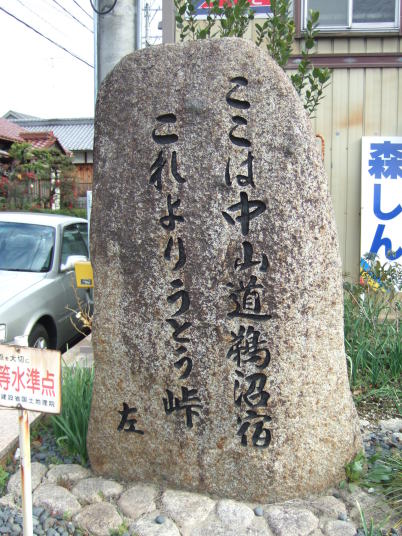 ここは中山道鵜沼宿
これよりうとう峠
左
森しん
等水準点
建設省国土地理院